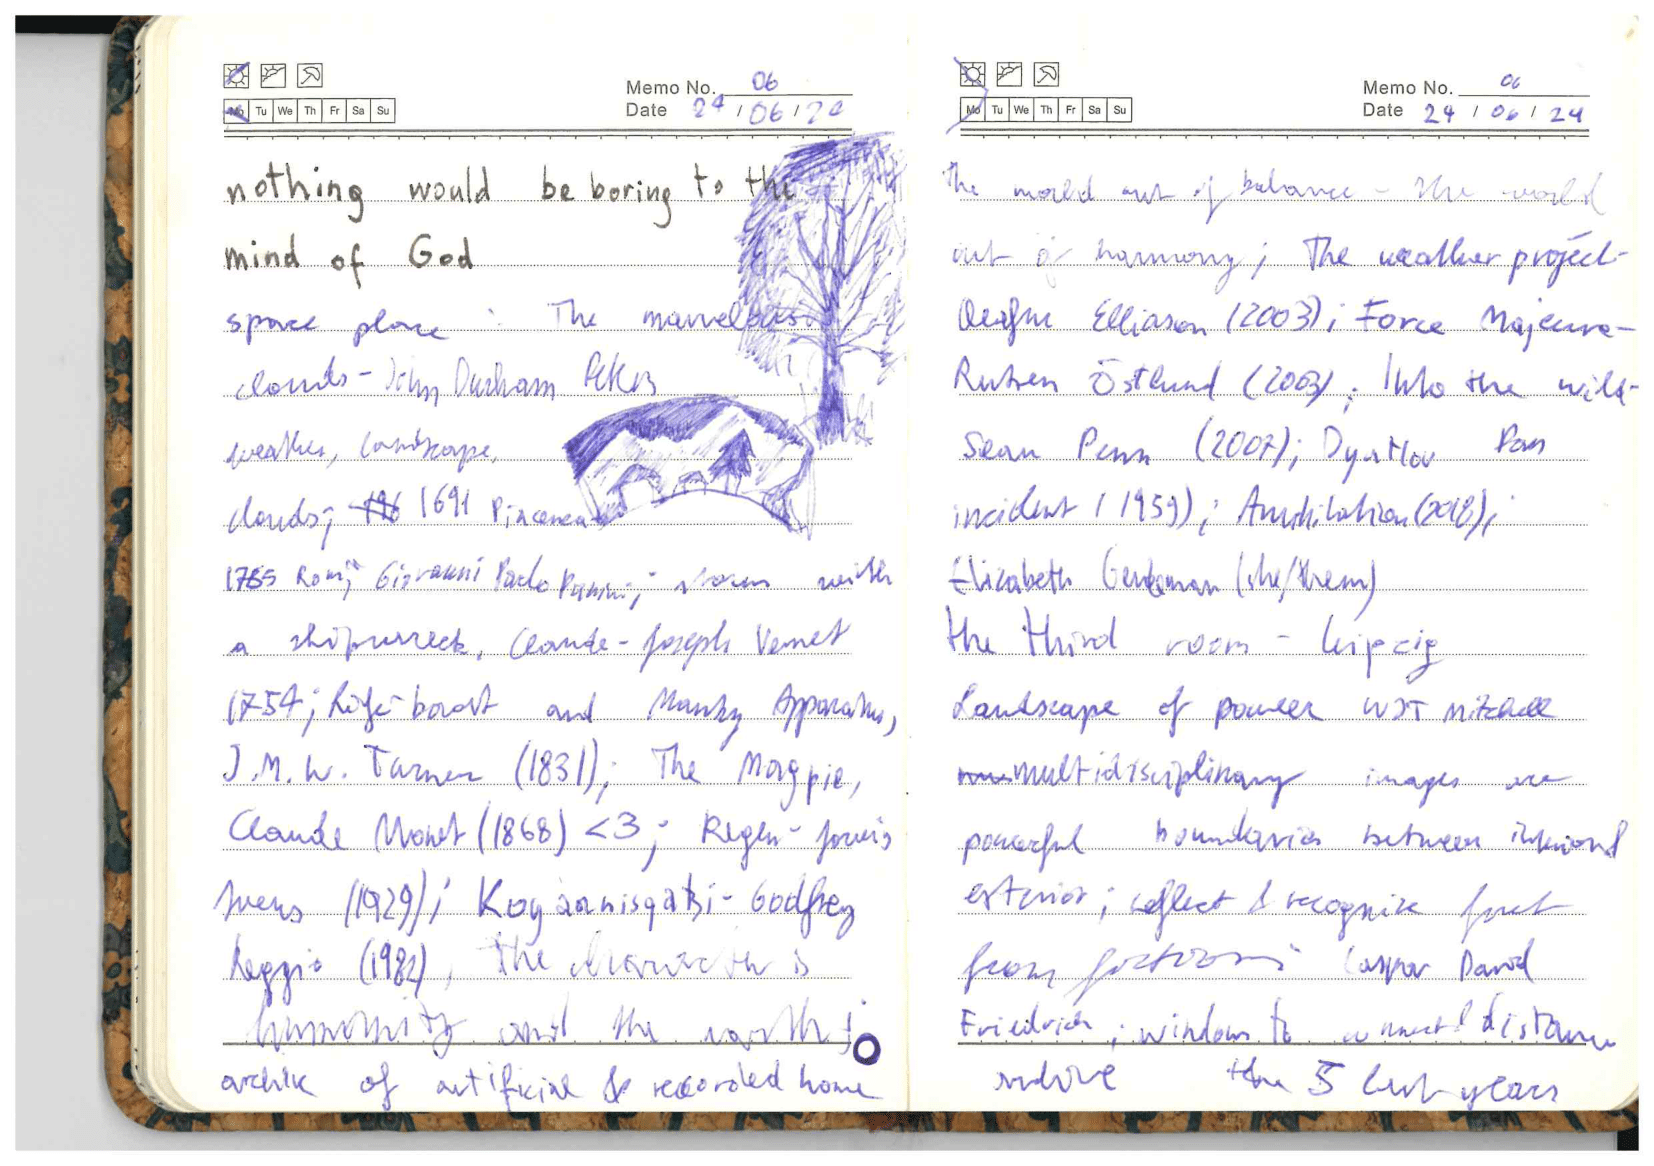 Memo No. 06
Mo Tu We Th Fr Sa Su
Date 24 / 06 / 24
nothing would be boring to the
mind of God
space place : The marvelous
clouds - John Durham Peters
weather, landscape,
clouds; 1691 Piacenza
1765 Rome; Giovanni Paolo Panini; storm with
a shipwreck, Claude-Joseph Vernet
1754; Life-boat and Manby Apparatus,
J.M.W. Turner (1831); The Magpie,
Claude Monet (1868) <3; Regen - Joris
Ivens (1929); Koyaanisqatsi - Godfrey
Reggio (1982), The character is
humanity and the earth;
archive of artificial & recorded home
Memo No. 06
Mo Tu We Th Fr Sa Su
Date 24 / 06 / 24
The world out of balance - the world
out of harmony; The weather project -
Elliason (2003); Force Majeure -
Ruben Östlund (2003); Into the wild -
Sean Penn (2007); Dyatlov Pass
incident (1959); Annihilation (2018);
Elizabeth (she/them)
the third room - Leipzig
Landscape of power WJT Mitchell
multidisciplinary images are
powerful boundaries between
exterior; reflect & recognize fact
from Caspar David
Friedrich; windows to connect distance
the 5 last years